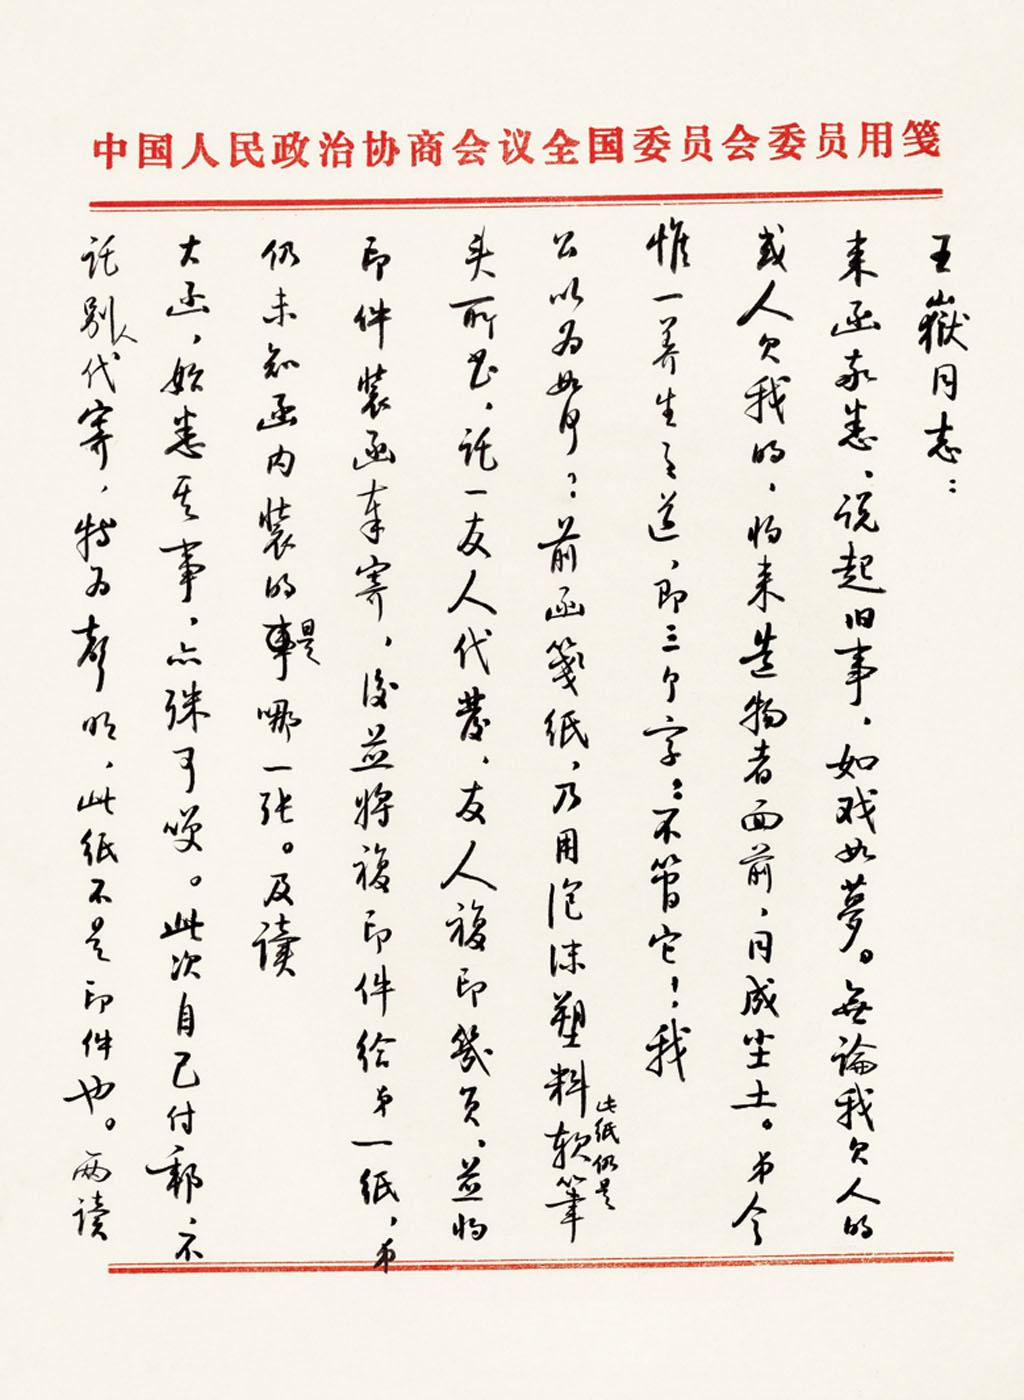 中国人民政治协商会议全国委员会委员用笺
王嶽同志：
来函敬悉，说起旧事，如戏如夢。無論我欠人的
或人欠我的，将来造物者面前，同成尘土。弟今
惟一养生之道，即三个字：不管它！我
公以为如何？前函笺纸，乃用泡沫塑料软筆
此纸仍是
头所书，託一友人代發，友人複印幾页，並将
印件装函奉寄，後並将複印件给弟一纸，弟
仍未知函内装的事是哪一张。及读
大函，始悉其事，亦殊可笑。此次自己付郵，不
託别人代寄，特为声明，此纸不是印件也。两读